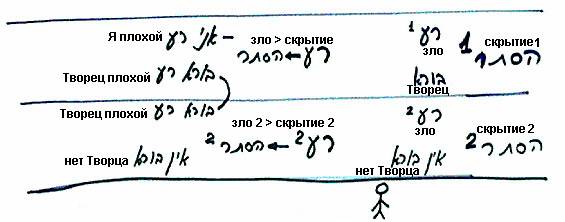 Я плохой אני רע –
зло > скрытие
רע ← הסתר
רע 1
зло
1 скрытие1
הסתר
Творец плохой בורא רע
בורא
Творец
Творец плохой בורא רע
зло 2 > скрытие 2
רע 2 ← הסתר 2
רע 2
зло
скрытие 2
הסתר 2
нет Творца אין בורא
אין בורא
нет Творца